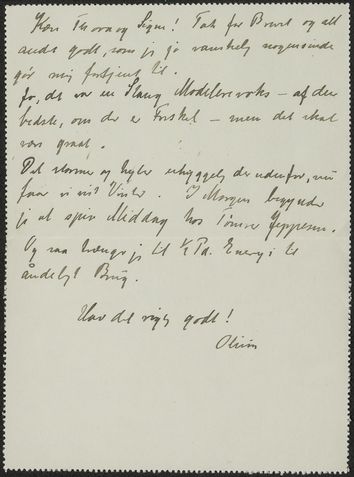 Kære Thora og Signe! Tak for Brevet og alt
andet godt, som jeg jo vanskelig nogensinde
gør mig fortjent til.
Jo, det var en Stang Modellervoks – af den
bedste, om der er Forskel – men det skal
være graat.
Det stormer og hyler uhyggeligt derudenfor, nu
faar vi vist Vinter. I Morgen begynder
jeg at spise Middag hos Tømrer Jeppesen.
Og saa trænger jeg til ½ Pd. Energi til
åndeligt Brug.
Hav det rigtig godt!